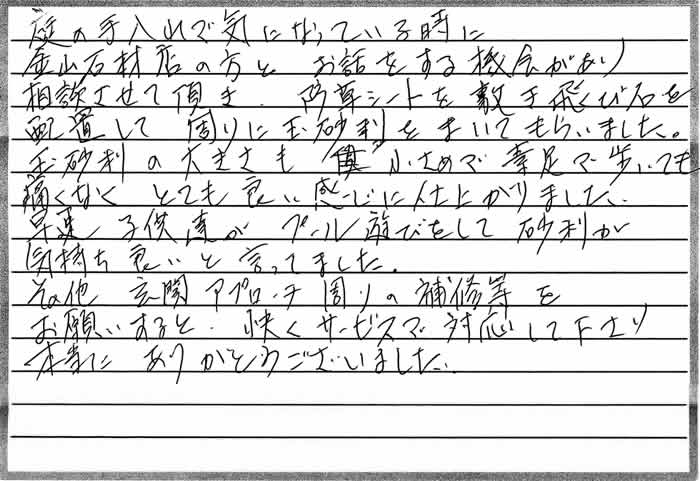 庭の手入れで気になっている時に
金山石材店の方と お話をする機会があり
相談させて頂き、防草シートを敷き飛び石を
配置して 周りに玉砂利をまいてもらいました。
玉砂利の大きさも 小さめで素足で歩いても
痛くなく とても良い感じに仕上がりました。
早速、子供達が プール遊びをして 砂利が
気持ち良いと言ってました。
その他 玄関アプローチ周りの補修等を
お願いすると、快くサービスで対応して下さり
本当に ありがとうございました。